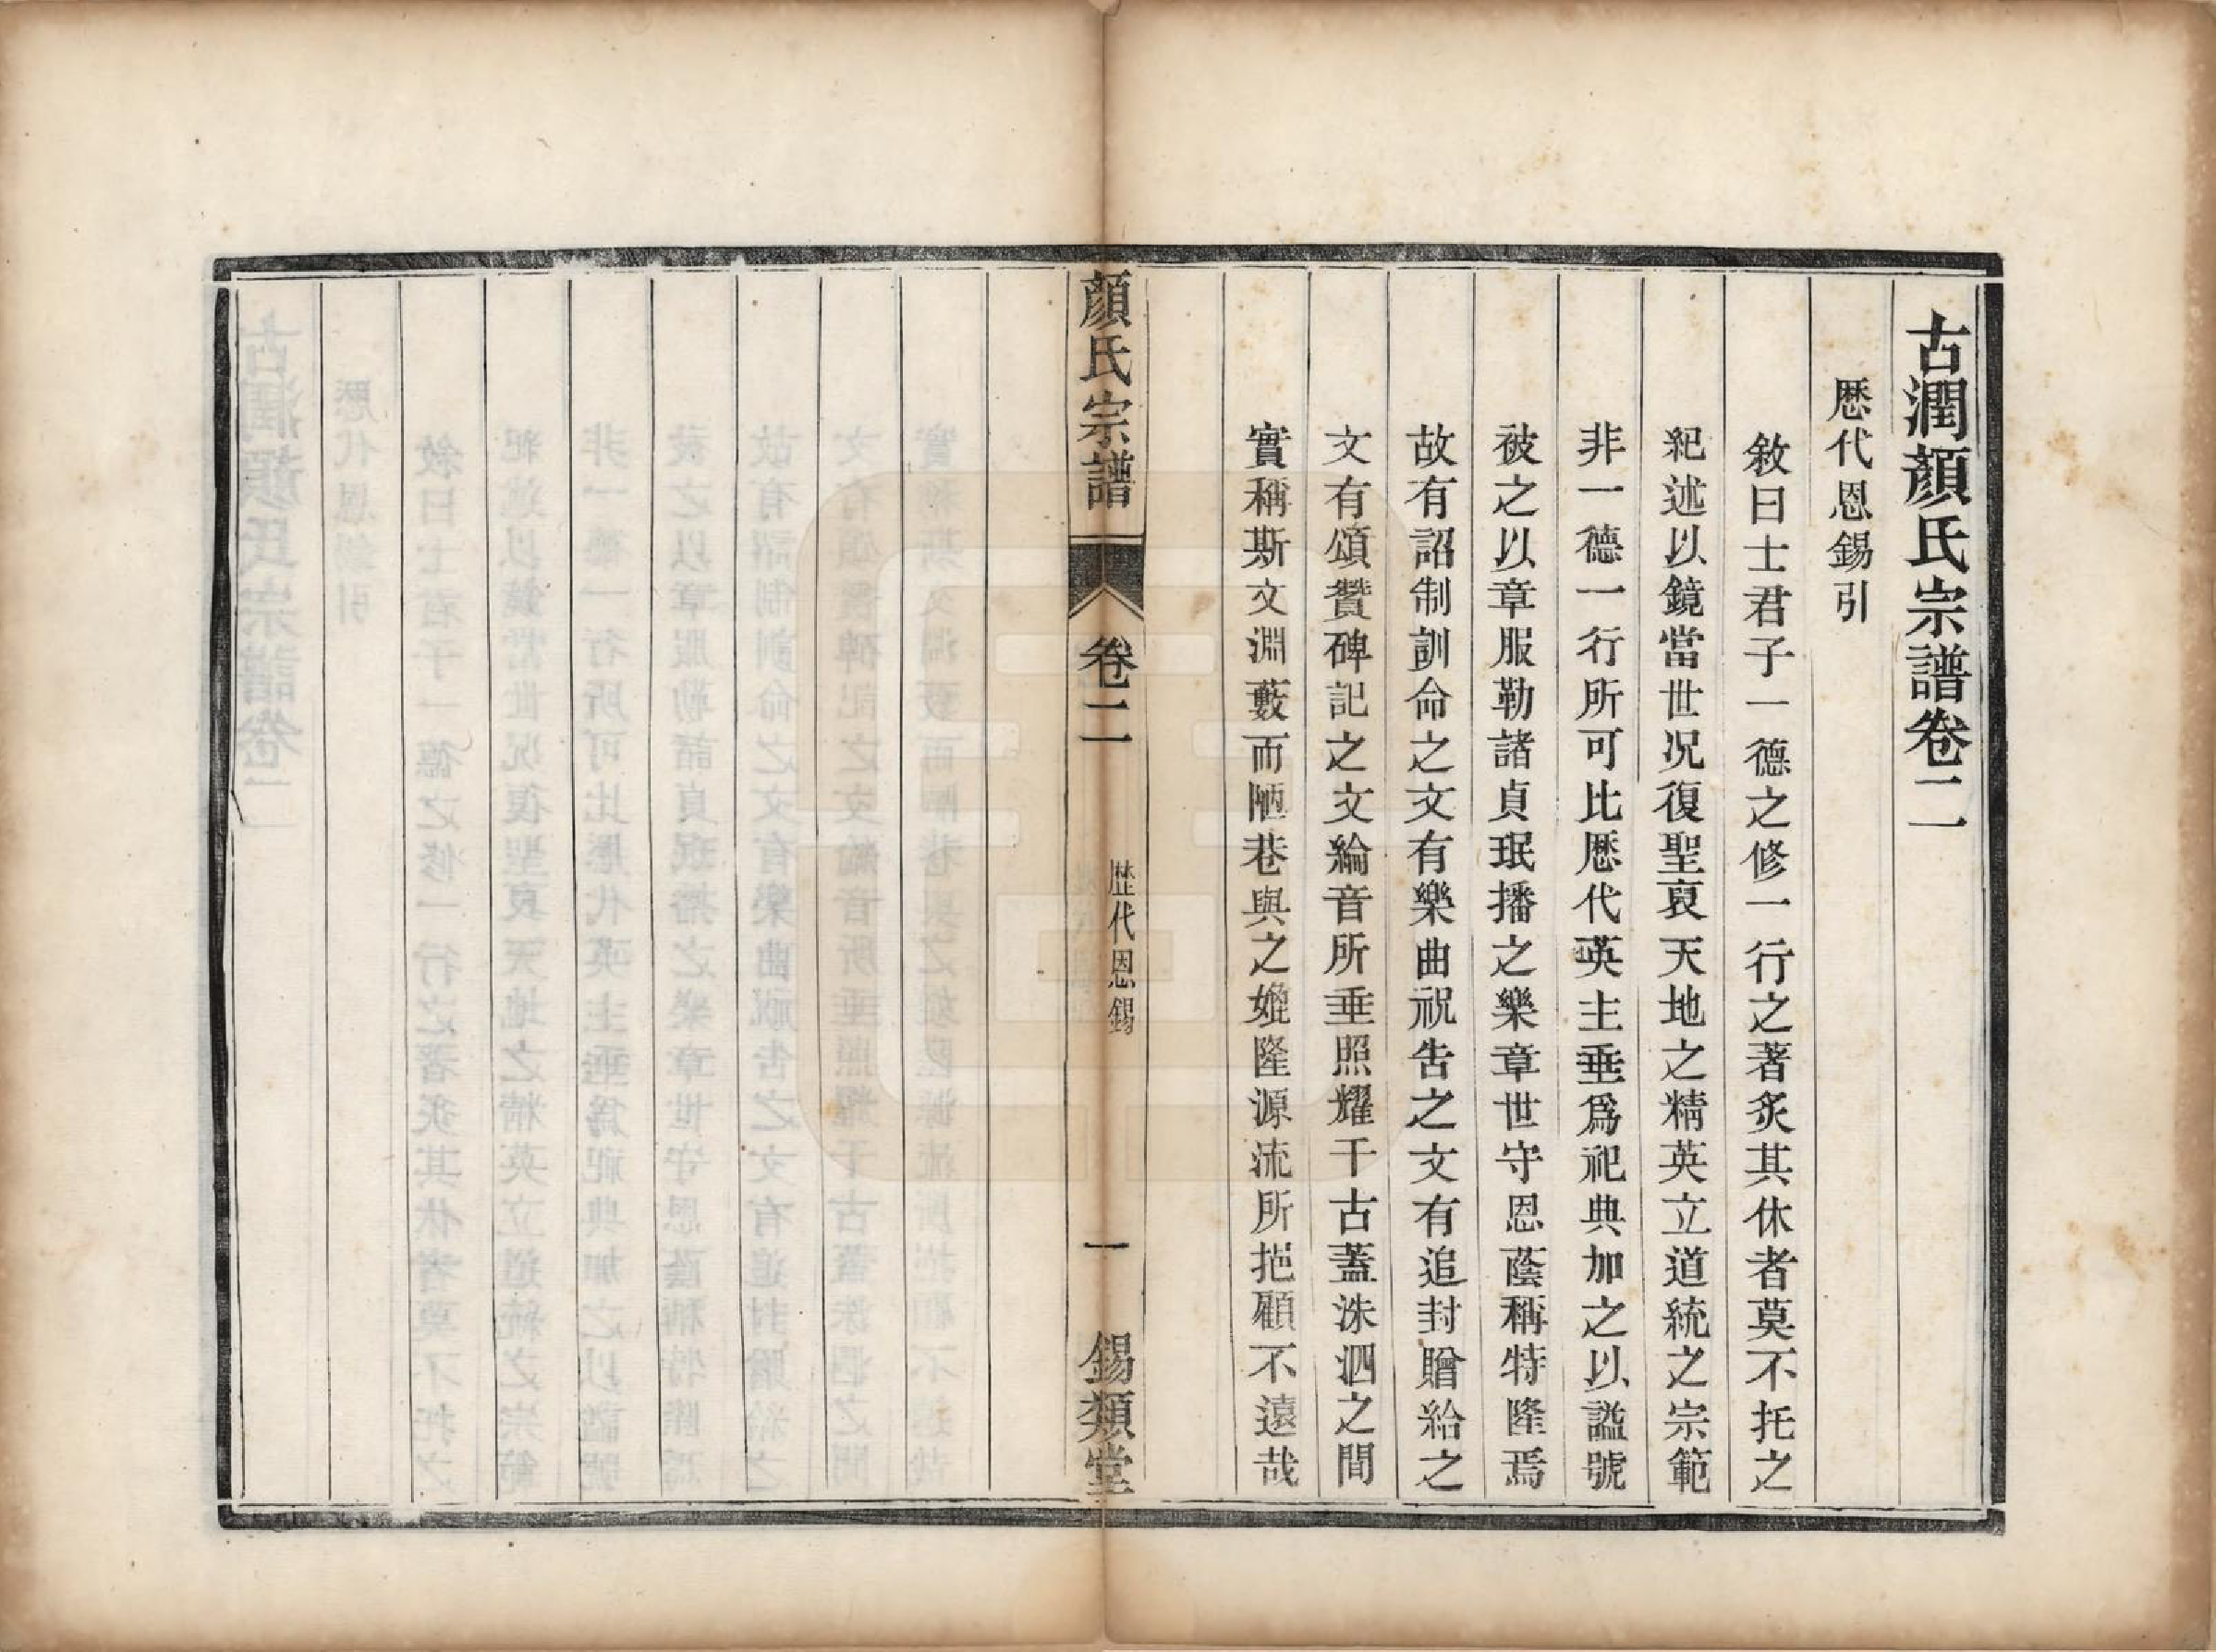 古潤顏氏宗譜卷二
歷代恩錫引
敘曰士君子一德之修一行之著炙其休者莫不托之
紀述以鏡當世況復聖裒天地之精英立道統之宗範
非一德一行所可比歷代英主垂爲祀典加之以謚號
被之以章服勒諸貞珉播之樂章世守恩蔭稱特隆焉
故有詔制訓命之文有樂曲祝告之文有追封贈給之
文有頌贊碑記之文綸音所垂照耀千古蓋洙泗之間
實稱斯文淵藪而陋巷與之媲隆源流所挹顧不遠哉
顏氏宗譜
卷二
歷代恩錫
一
錫類堂